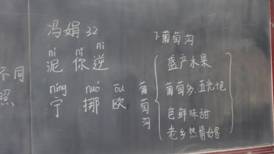 冯娟 32
不同
照
nì nǐ nì
泥 你 逆
níng nuó ōu
宁 挪 欧
葡萄沟
葡萄沟
盛产水果
葡萄多
色鲜味甜
老乡热情好客